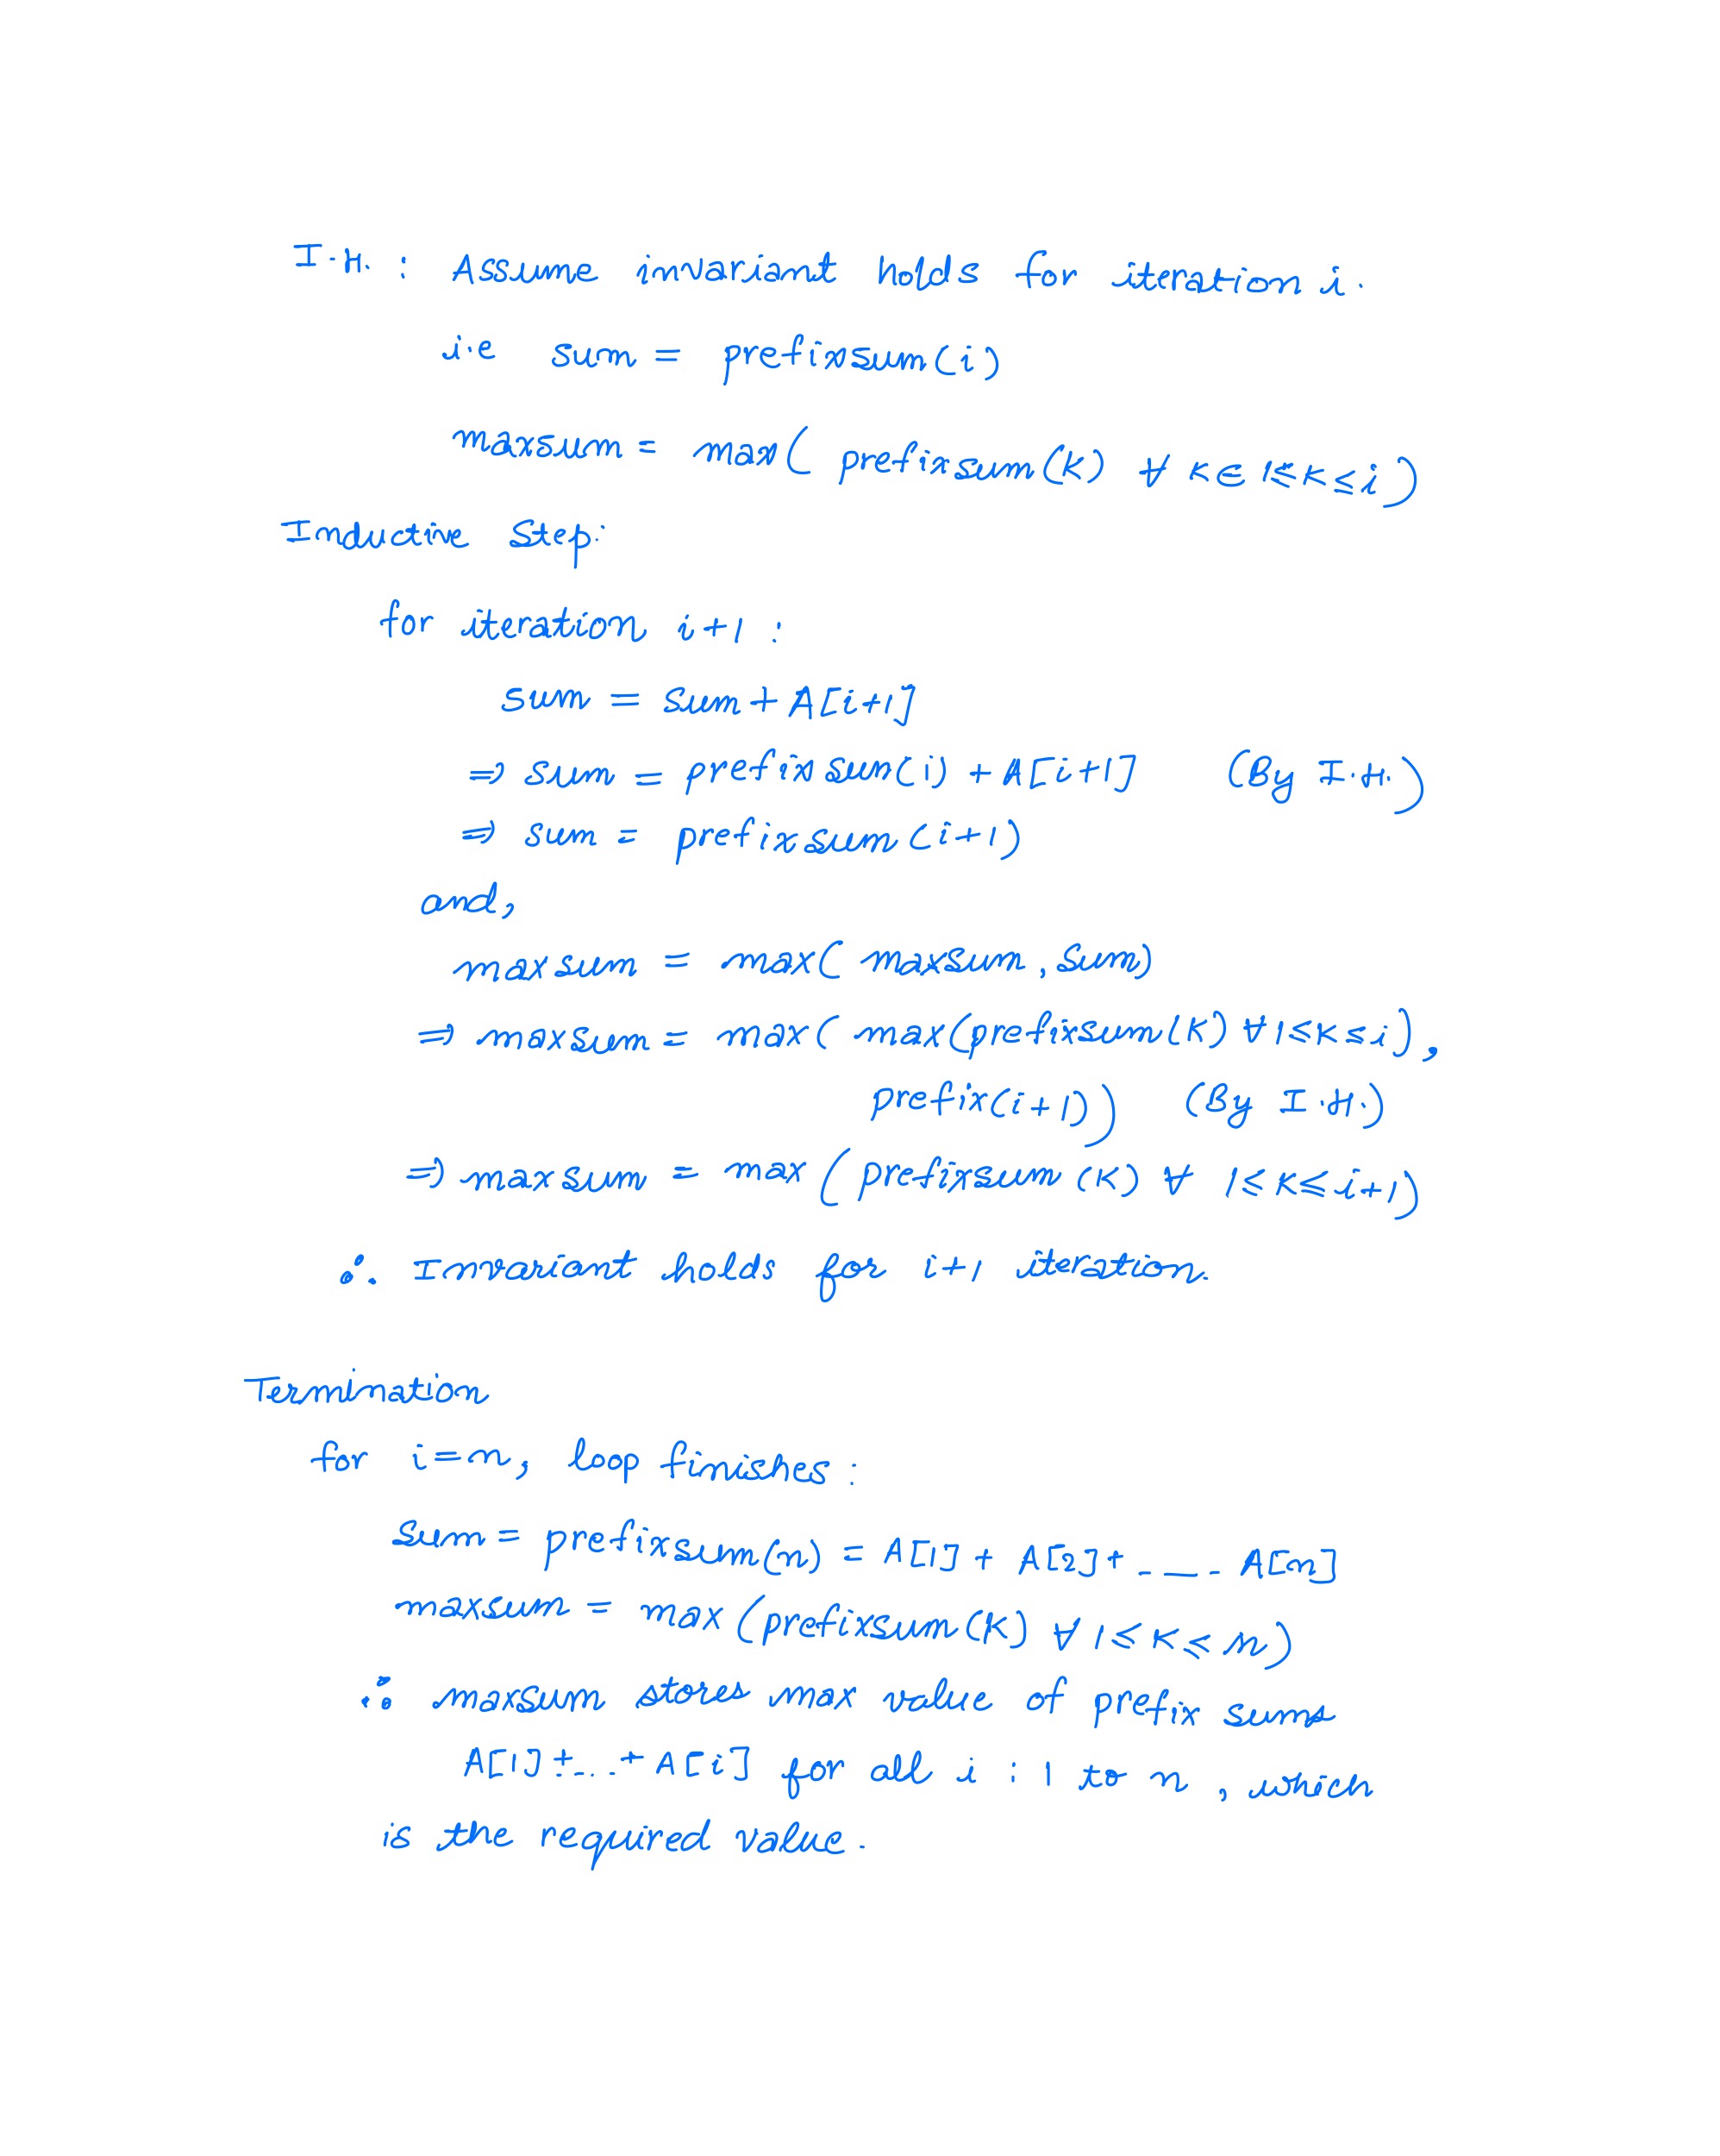 I.H. : Assume invariant holds for iteration i.
i.e sum = prefixsum(i)
maxsum = max( prefixsum(K) ∀ K∈ 1≤K≤i)
Inductive Step:
for iteration i+1 :
sum = sum + A[i+1]
⇒ sum = prefixsum(i) + A[i+1] (By I.H.)
⇒ sum = prefixsum(i+1)
and,
maxsum = max( maxsum, sum)
⇒ maxsum = max( max(prefixsum(K) ∀ 1≤K≤i),
prefix(i+1)) (By I.H.)
⇒ maxsum = max (prefixsum (K) ∀ 1≤K≤i+1)
∴ Invariant holds for i+1 iteration.
Termination
for i=n, loop finishes :
Sum = prefixsum(n) = A[1] + A[2] + ---- A[n]
maxsum = max (prefixsum(K) ∀ 1≤K≤n)
∴ maxsum stores max value of prefix sums
A[1] +...+ A[i] for all i : 1 to n, which
is the required value.